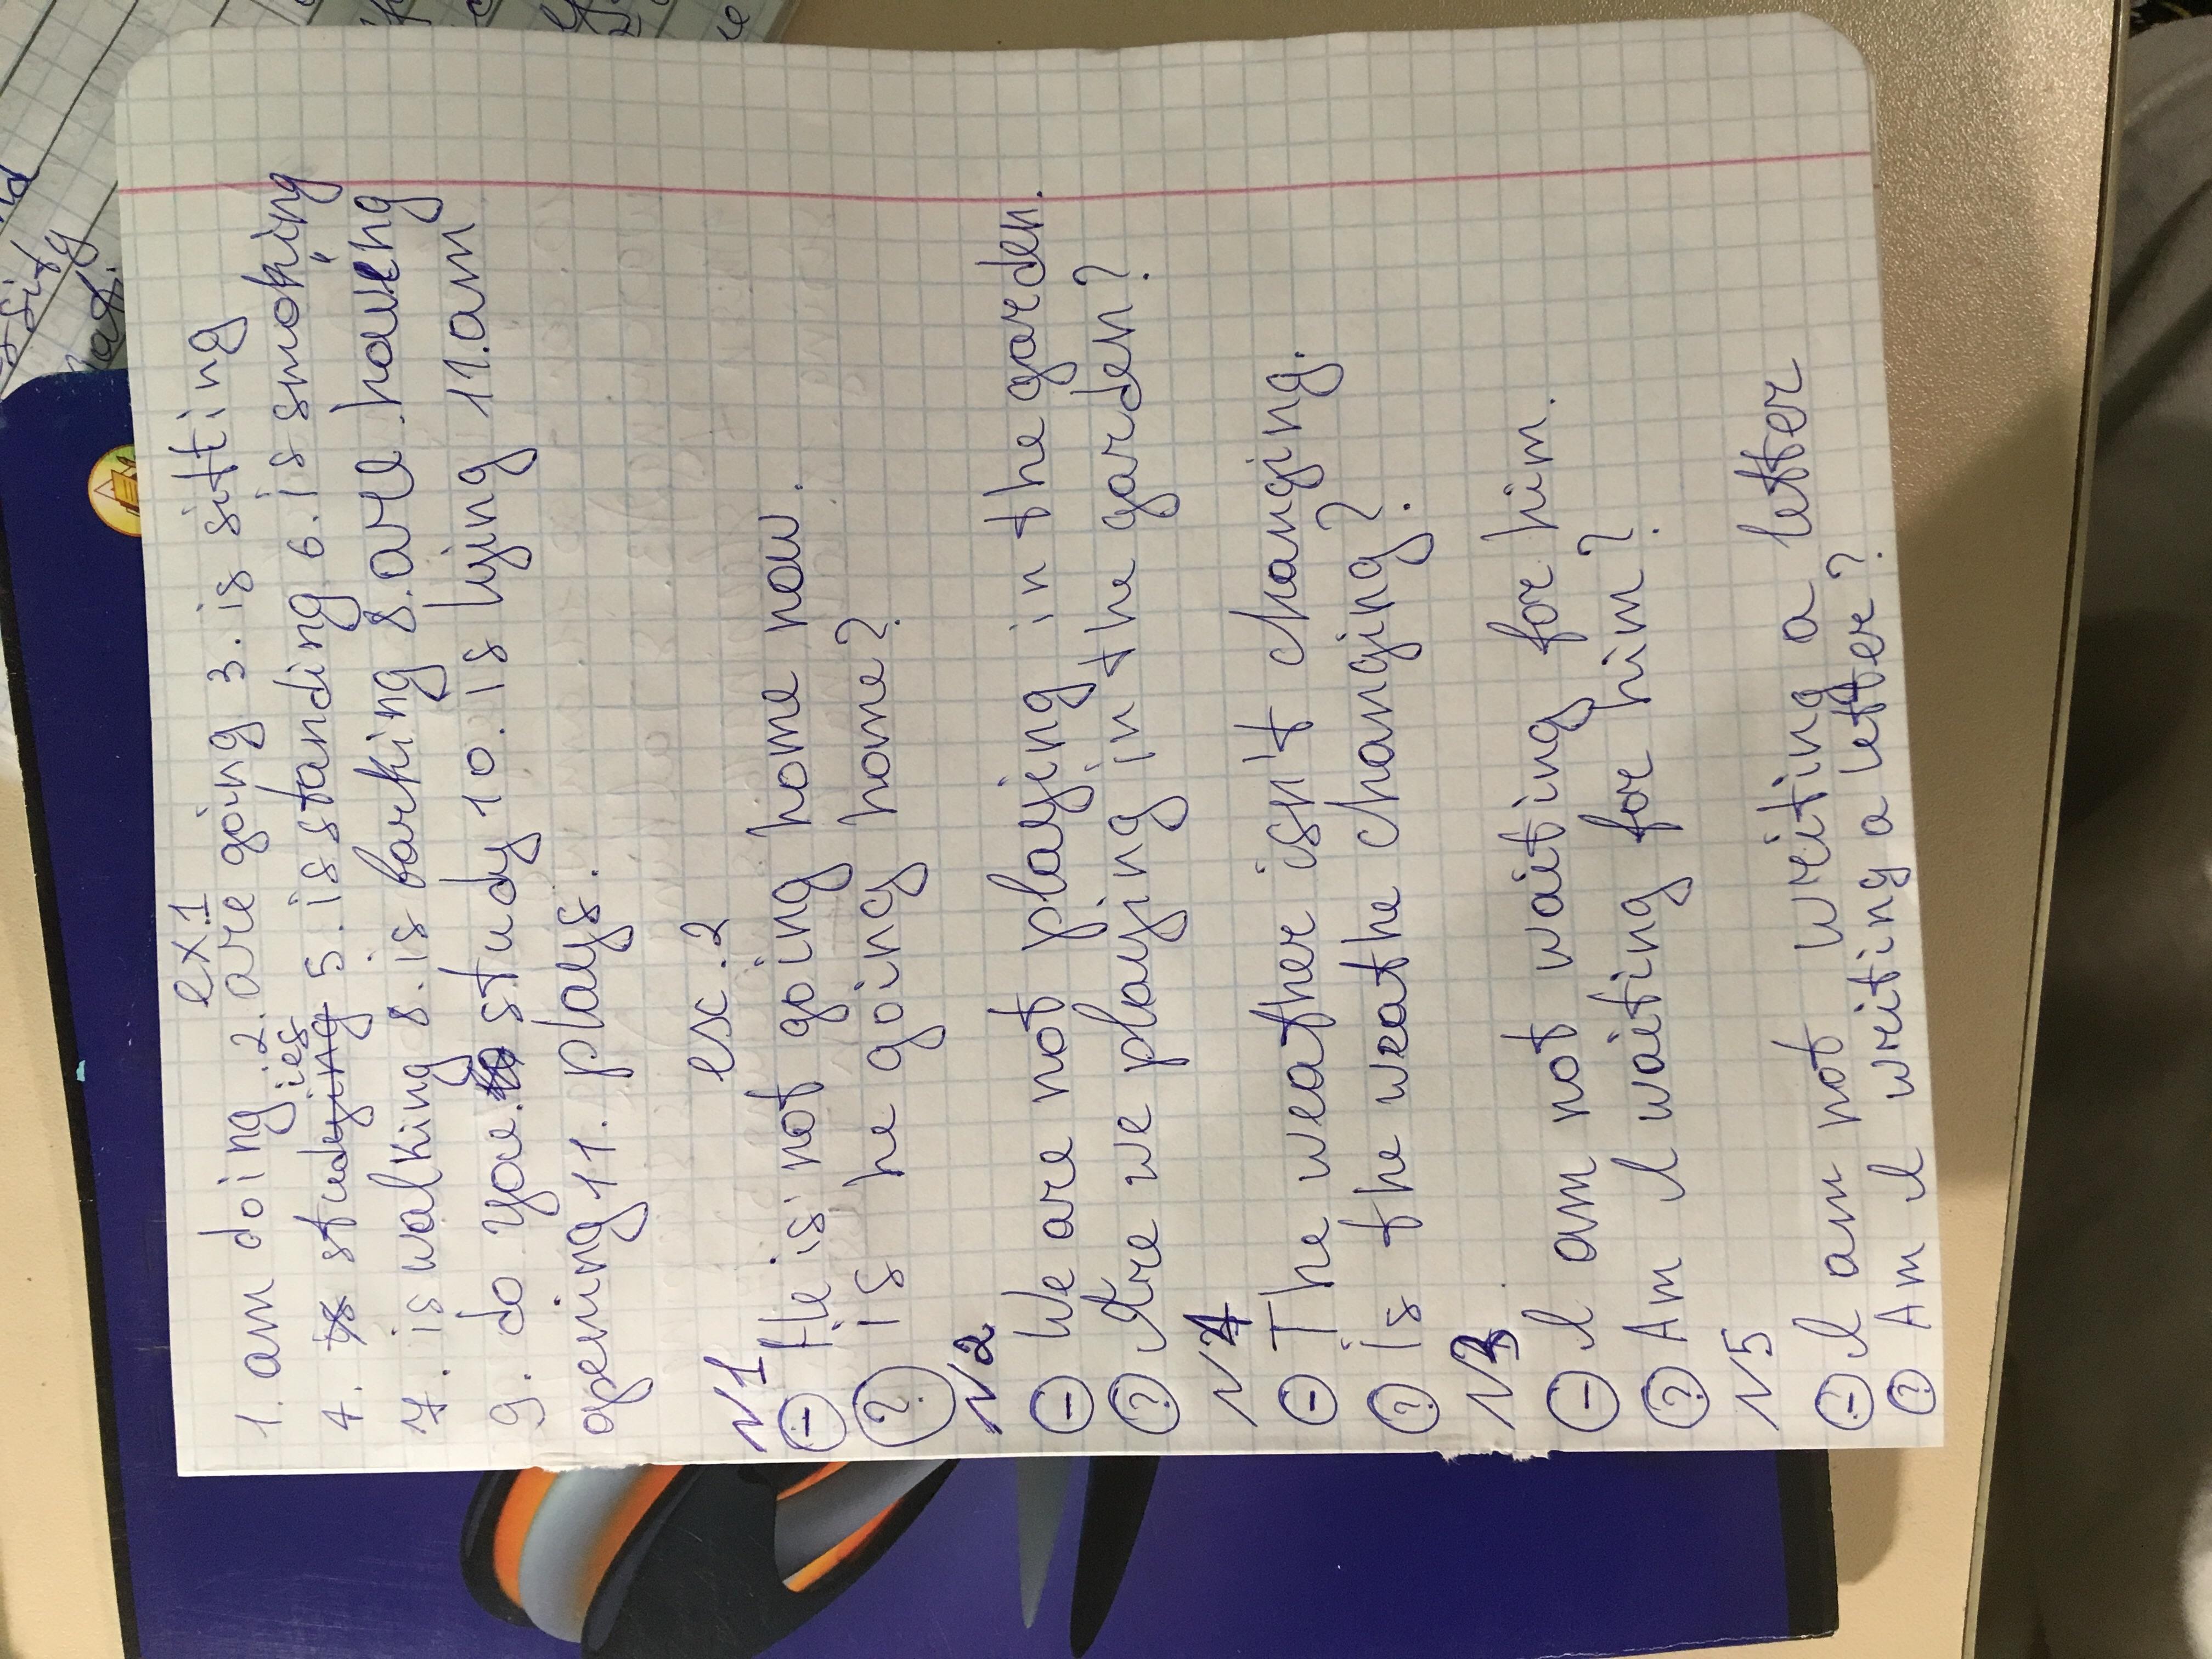 ex.1
1. am doing 2. are going 3. is sitting
4. is studying ies 5. is standing 6. is smoking
7. is walking 8. is barking 8. are having
9. do you study 10. is lying 11. am
opening 11. plays.
ex.2
N1
⊖ He is not going home now.
? is he going home?
N2
⊖ We are not playing in the garden.
? Are we playing in the garden?
N4
⊖ The weather isn't changing.
? is the weathe changing?
N3
⊖ I am not waiting for him.
? Am I waiting for him?
N5
⊖ I am not writing a letter
? Am I writing a letter?